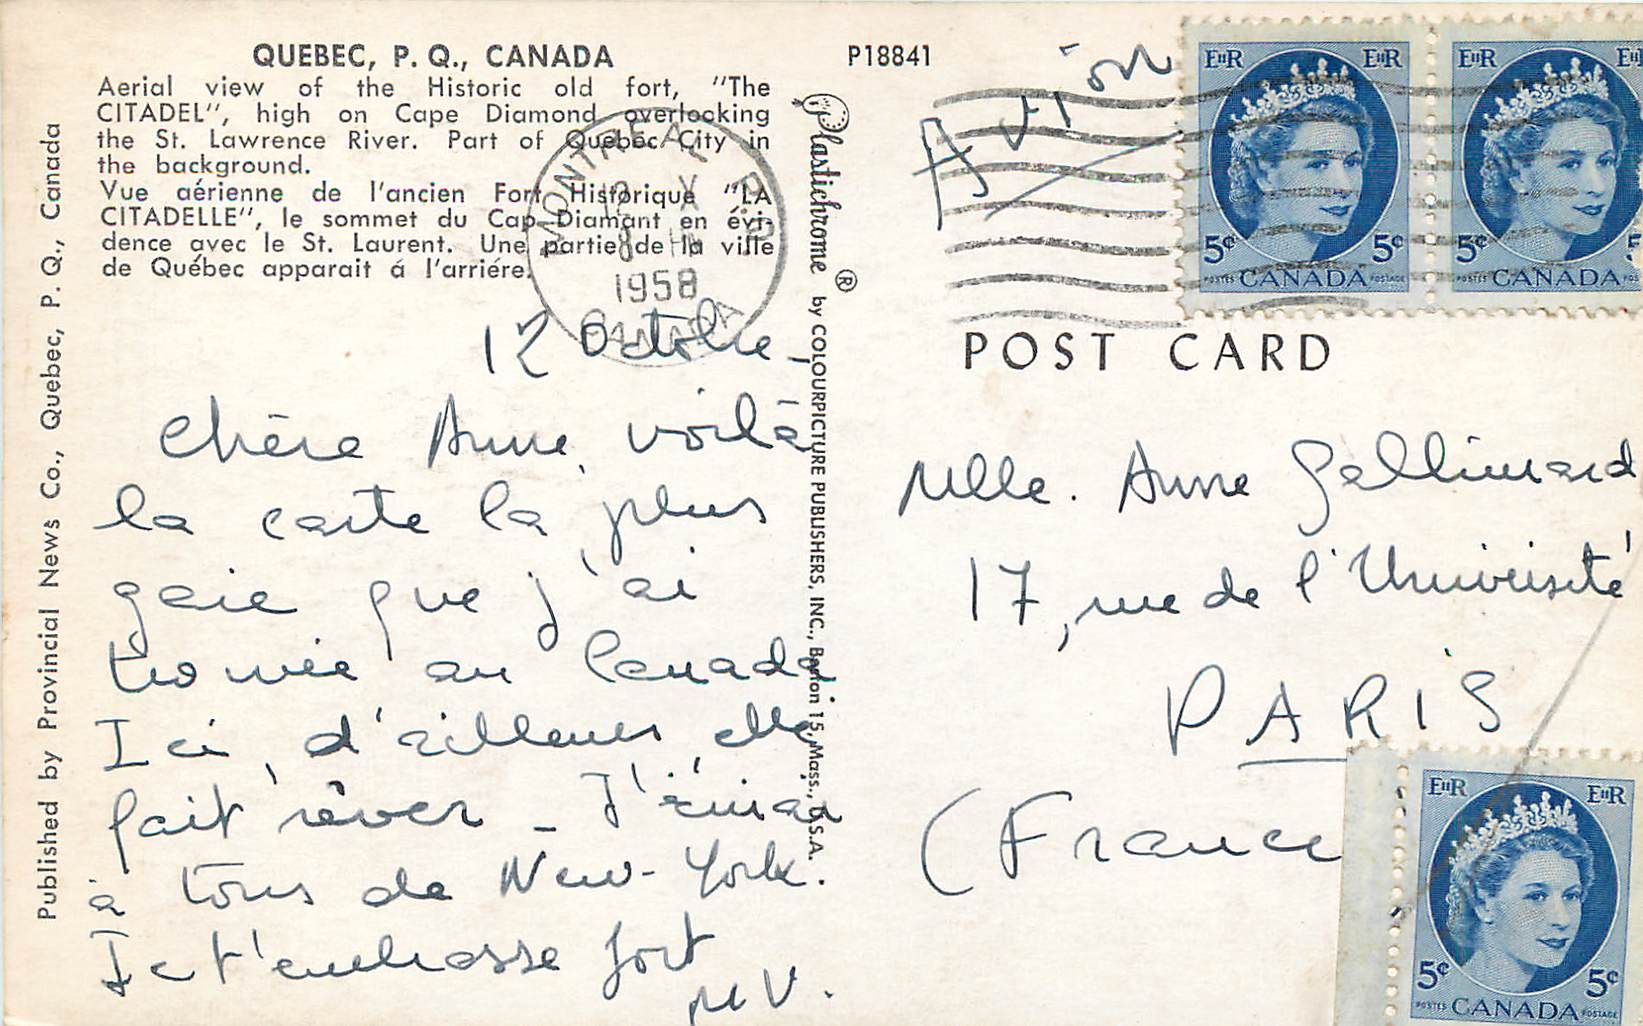 QUEBEC, P. Q., CANADA
Aerial view of the Historic old fort, "The
CITADEL", high on Cape Diamond overlooking
the St. Lawrence River. Part of Quebec City in
the background.
Vue aérienne de l'ancien Fort Historique "LA
CITADELLE", le sommet du Cap Diamant en évi-
dence avec le St. Laurent. Une partie de la ville
de Québec apparait á l'arriére.
Published by Provincial News Co., Quebec, P. Q., Canada
MONTREAL P.Q.
1958
CANADA
12 Octobre -
Chère Anne, voilà
la carte la plus
gaie que j'ai
trouvée au Canada
Ici, d'ailleurs, elle
fait rêver - J'écrirai
à tous de New-York.
Je t'embrasse fort
M V.
Plastichrome ® by COLOURPICTURE PUBLISHERS, INC., Boston 15, Mass., U.S.A.
P18841
Avion
EIIR EIIR
5¢ 5¢
POSTES CANADA POSTAGE
EIIR
5¢ 5
POSTES CANADA
POST CARD
Mlle. Anne Gallimard
17, rue de l'Université
PARIS
(France
EIIR EIIR
5¢ 5¢
POSTES CANADA POSTAGE